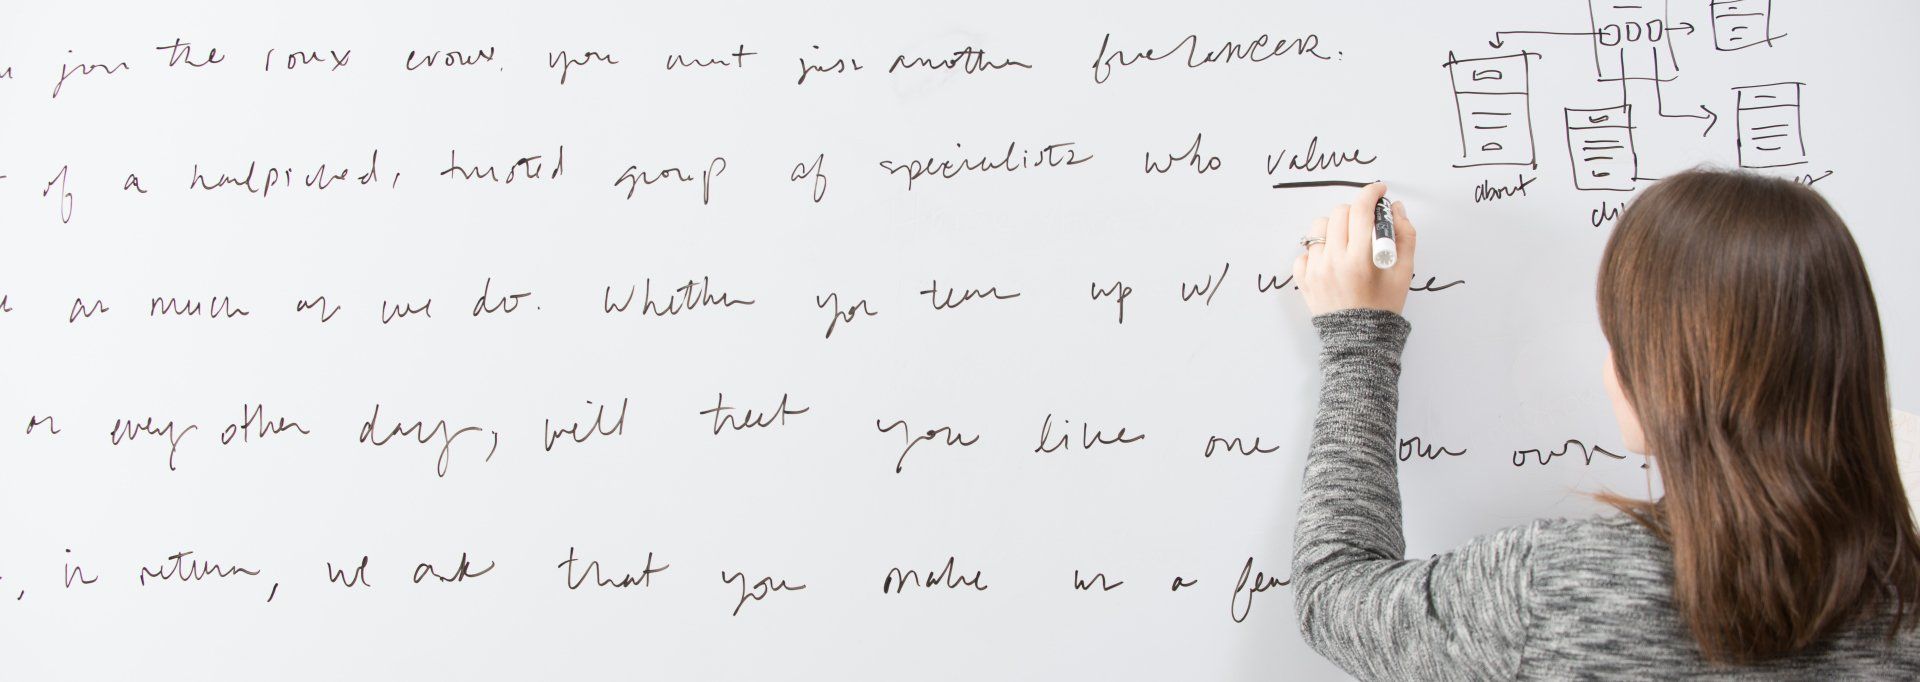 join the roux crowx. you arent just another freelancer.
of a handpicked, trusted group of specialists who value
as much as we do. Whether you team up w/
or every other day, will treat you like one our own.
, in return, we ask that you make us a few
about